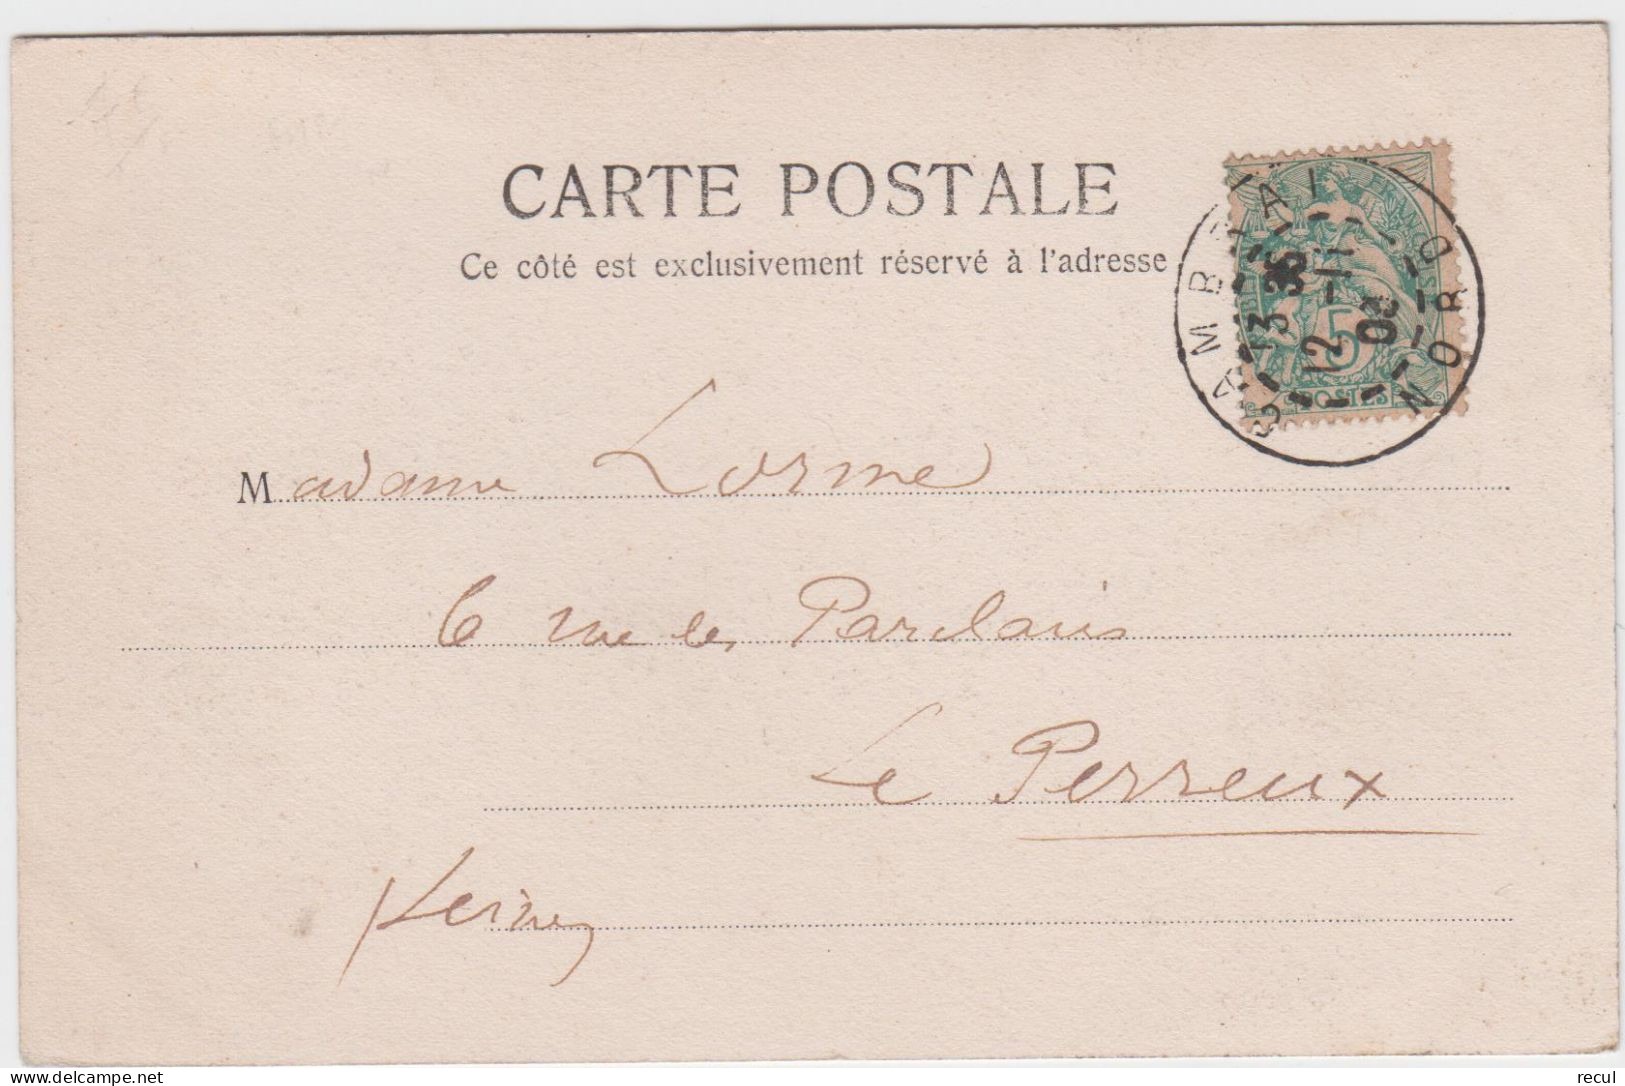 CARTE POSTALE
Ce côté est exclusivement réservé à l'adresse
CAMBRAI
NORD
13 35
12 -11
03
FRANÇ
5
POSTES
Madame Lorme
6 rue des Parclairs
Le Perreux
Seine
delcampe.net
recul